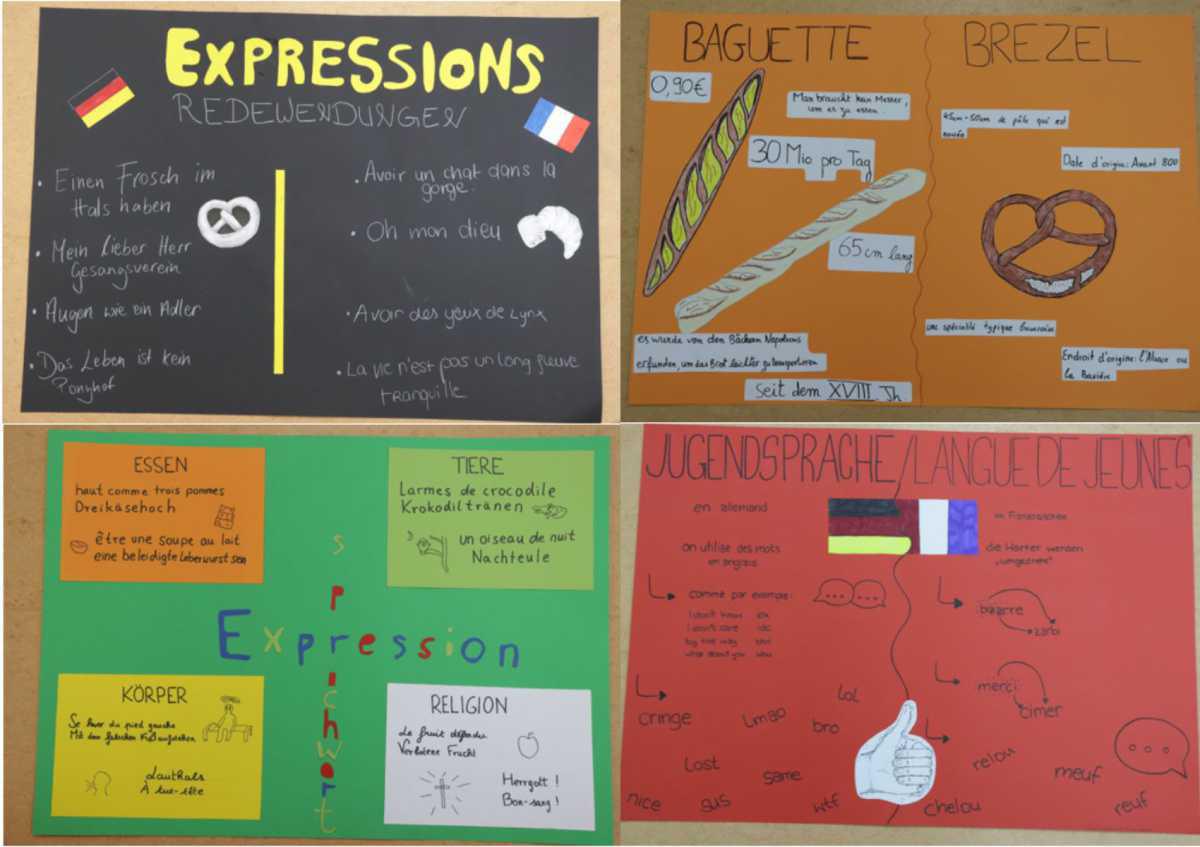 EXPRESSIONS
REDEWENDUNGEN
• Einen Frosch im
Hals haben
• Mein lieber Herr
Gesangsverein
• Augen wie ein Adler
• Das Leben ist kein
Ponyhof
• Avoir un chat dans la
gorge
• Oh mon dieu
• Avoir des yeux de Lynx
• La vie n'est pas un long fleuve
tranquille
BAGUETTE
0,90€
Man braucht kein Messer,
um es zu essen.
30 Mio pro Tag
65cm lang
es wurde von den Bäckern Napoleons
erfunden, um das Brot leichter zu transportieren
Seit dem XVIII Jh
BREZEL
45cm-50cm de pâte qui est
nouée
Date d'origine: Avant 800
une spécialité typique
Endroit d'origine: l'Alsace ou
la Bavière
ESSEN
haut comme trois pommes
Dreikäsehoch
être une soupe au lait
eine beleidigte Leberwurst sein
TIERE
Larmes de crocodile
Krokodiltränen
un oiseau de nuit
Nachteule
Expression
sprichwort
KÖRPER
Se lever du pied gauche
Mit dem falschen Fuß aufstehen
Lauthals
À tue-tête
RELIGION
Le fruit défendu
Verbotene Frucht
Herrgott !
Bon-sang !
JUGENDSPRACHE/LANGUE DE JEUNES
en allemand
on utilise des mots
en anglais
comme par exemple:
I don't know idk
I don't care idc
by the way btw
what about you wbu
cringe
lmao
lol
bro
Lost
same
nice
sus
wtf
im Französischen
die Wörter werden
"umgedreht"
bizarre
zarbi
merci
cimer
relou
meuf
chelou
reuf